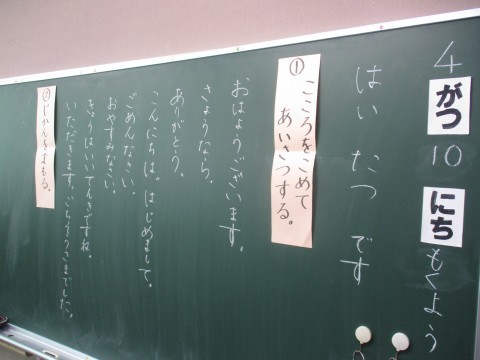 4がつ10にちもくよう
はい たつ です
①こころをこめて
あいさつする。
おはようございます。
さようなら。
ありがとう。
こんにちは。はじめまして。
ごめんなさい。
おやすみなさい。
きょうはいいてんきですね。
いただきます。ごちそうさまでした。
②じかんをまもる。